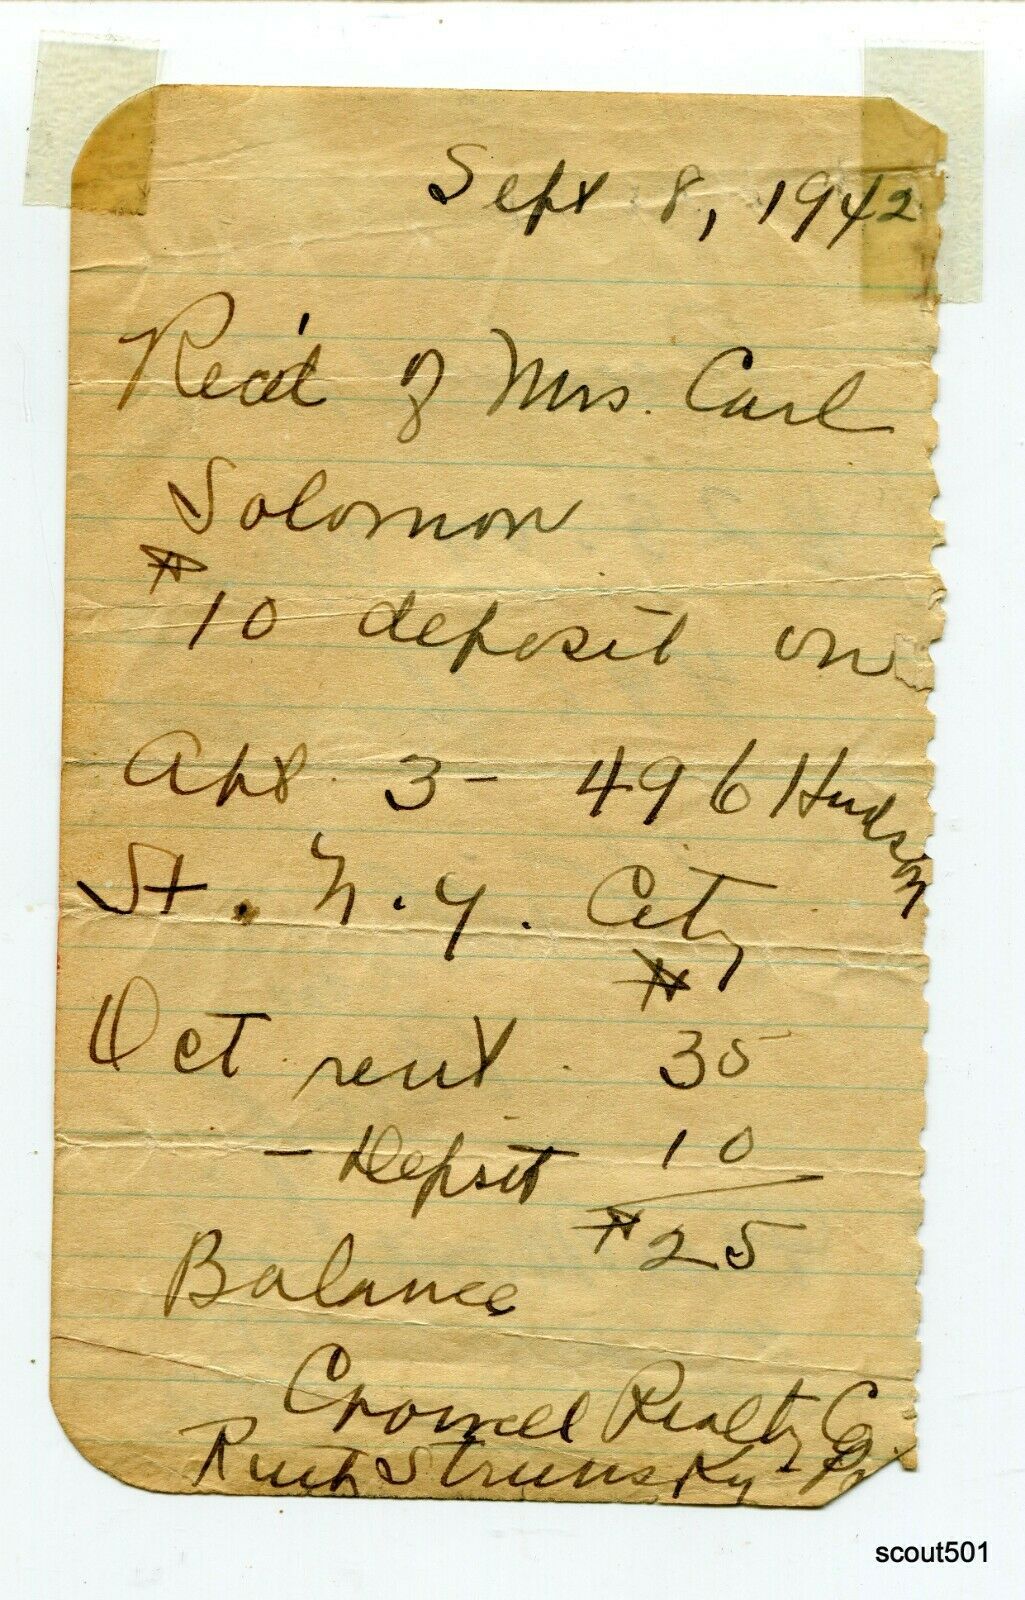 Sept 8, 1942
Rec'd of Mrs. Carl
Solomon
$10 deposit on
Apt. 3 - 496 Hudson
St. N.Y. City
$
Oct rent. 35
- Deposit 10
$25
Balance
Realty Co.
Ruth Strunsky
scout501